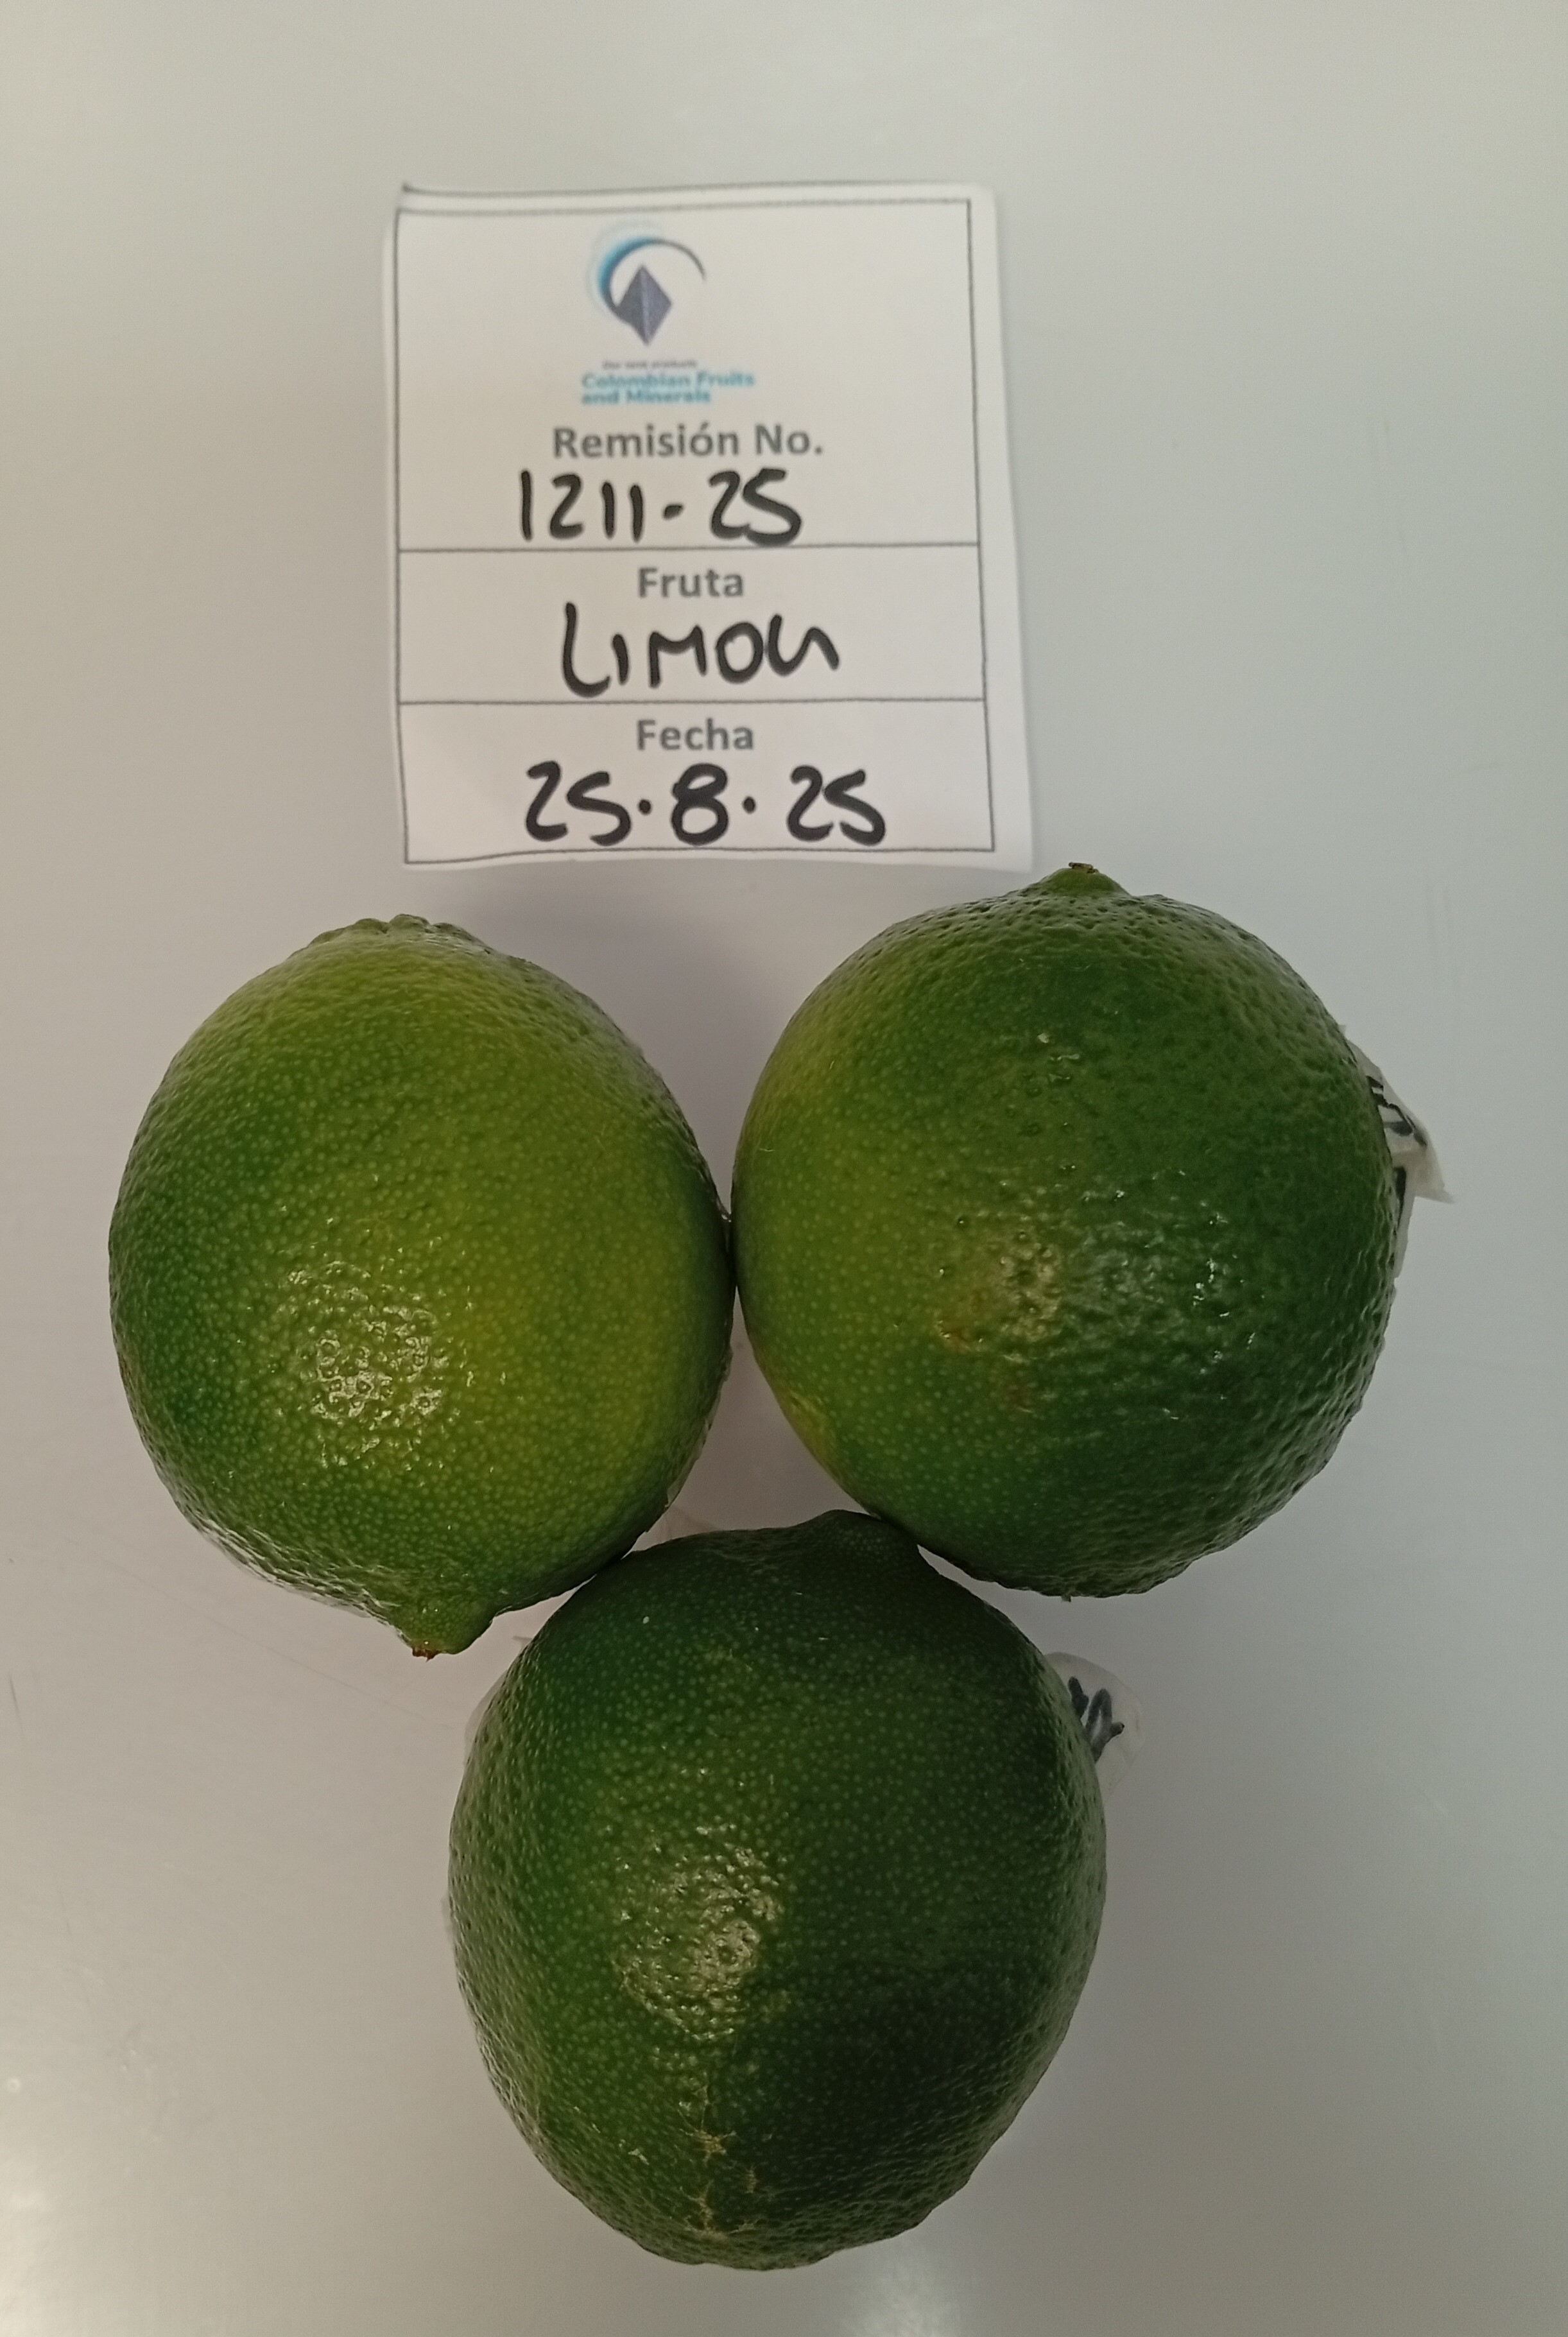 Our best products
Colombian Fruits
and Minerals
Remisión No.
1211-25
Fruta
LIMON
Fecha
25.8.25